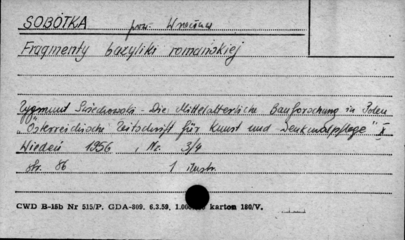 SOBÓTKA pow. Wrocław
Fragmenty bazyliki romańskiej
Zygmunt Świechowski - Die Mittelalterliche Bauforschung in Polen
„Österreichische Zeitschrift für Kunst und Denkmalpflege" X
Wiedeń 1956, Nr. 3/4
str. 86 1 ilustr.
CWD B-15b Nr 515/P. GDA-809. 6.3.59. 1.000 karton 180/V.